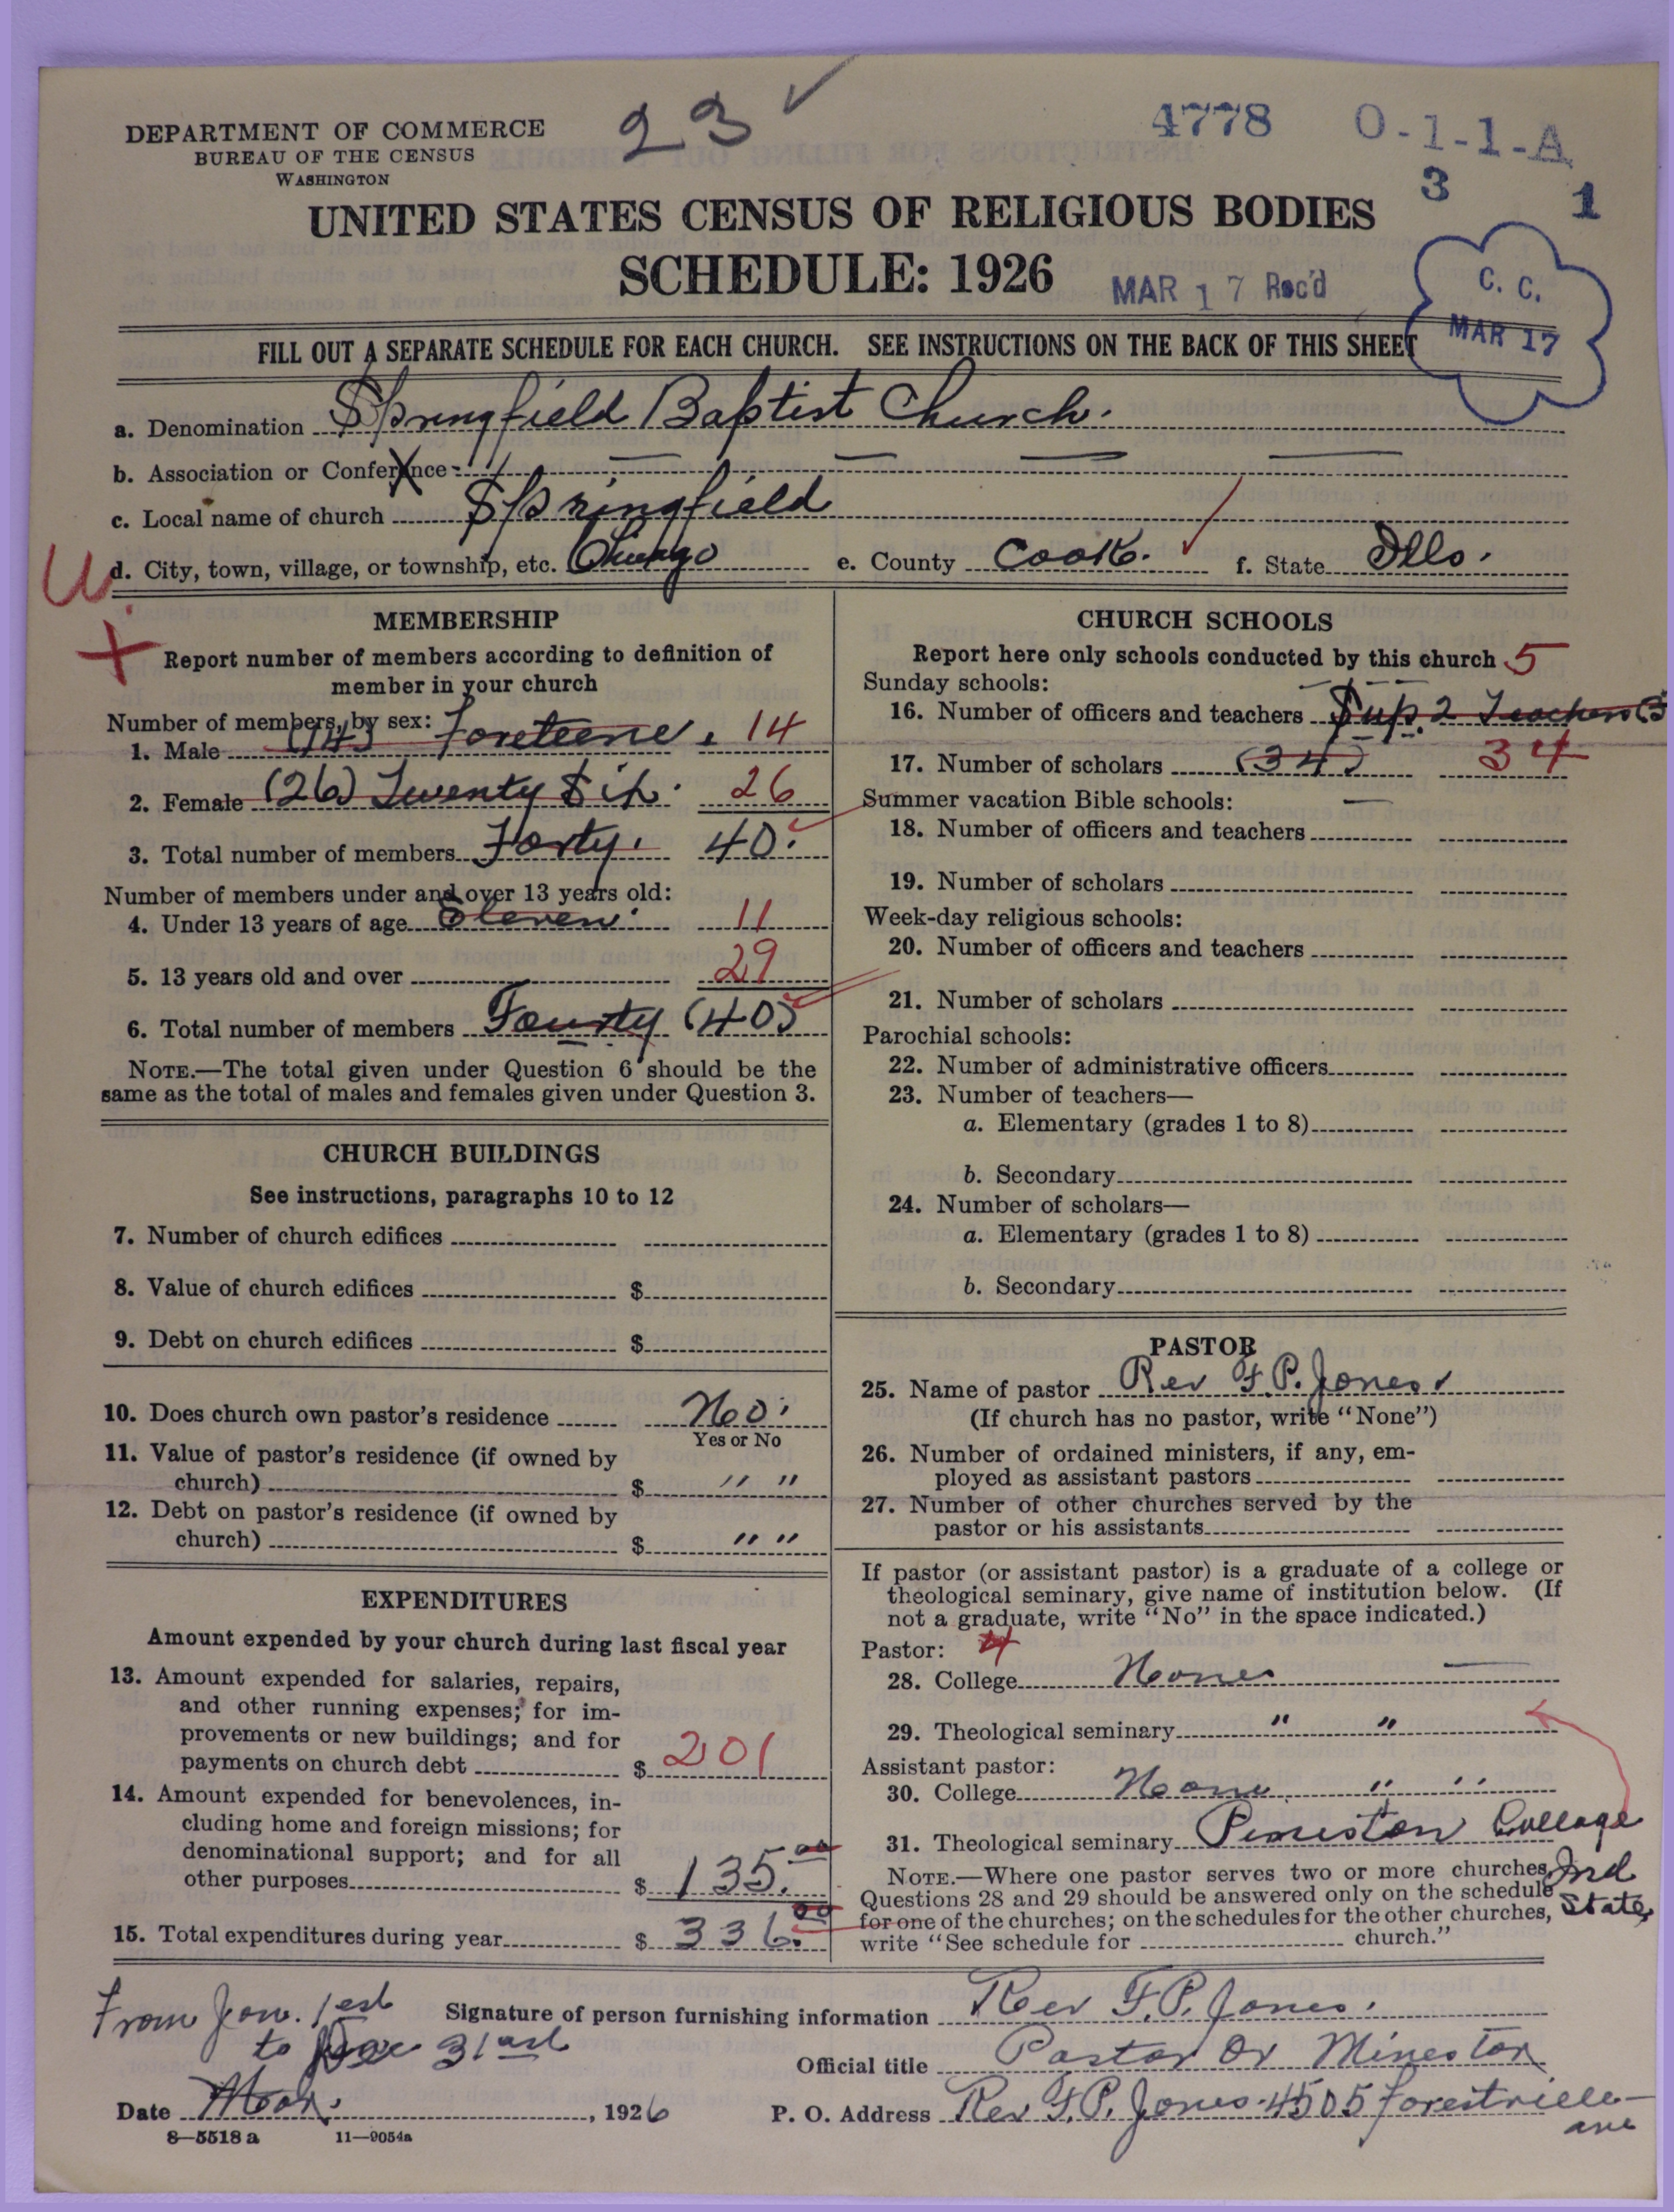 23 ✓
4778 O-1-1-A
3 1
DEPARTMENT OF COMMERCE
BUREAU OF THE CENSUS
WASHINGTON
UNITED STATES CENSUS OF RELIGIOUS BODIES
SCHEDULE: 1926
MAR 17 Rec'd
C. C.
MAR 17
FILL OUT A SEPARATE SCHEDULE FOR EACH CHURCH. SEE INSTRUCTIONS ON THE BACK OF THIS SHEET
a. Denomination Springfield Baptist Church.
b. Association or Conference
c. Local name of church Springfield
U. d. City, town, village, or township, etc. Chicago e. County Cook. f. State Ills.
MEMBERSHIP
Report number of members according to definition of
member in your church
Number of members, by sex:
1. Male (14) Foreteene. 14
2. Female (26) Twenty Six. 26
3. Total number of members Forty. 40.
Number of members under and over 13 years old:
4. Under 13 years of age Eleven. 11
5. 13 years old and over 29
6. Total number of members Fourty (40)
NOTE.—The total given under Question 6 should be the
same as the total of males and females given under Question 3.
CHURCH BUILDINGS
See instructions, paragraphs 10 to 12
7. Number of church edifices
8. Value of church edifices $
9. Debt on church edifices $
10. Does church own pastor's residence No.
Yes or No
11. Value of pastor's residence (if owned by
church) $ " "
12. Debt on pastor's residence (if owned by
church) $ " "
EXPENDITURES
Amount expended by your church during last fiscal year
13. Amount expended for salaries, repairs,
and other running expenses; for im-
provements or new buildings; and for
payments on church debt $ 201
14. Amount expended for benevolences, in-
cluding home and foreign missions; for
denominational support; and for all
other purposes $ 135.00
15. Total expenditures during year $ 336.00
CHURCH SCHOOLS
Report here only schools conducted by this church 5
Sunday schools:
16. Number of officers and teachers Sup. 2 Teachers (3
17. Number of scholars (34) 34
Summer vacation Bible schools:
18. Number of officers and teachers
19. Number of scholars
Week-day religious schools:
20. Number of officers and teachers
21. Number of scholars
Parochial schools:
22. Number of administrative officers
23. Number of teachers—
a. Elementary (grades 1 to 8)
b. Secondary
24. Number of scholars—
a. Elementary (grades 1 to 8)
b. Secondary
PASTOR
25. Name of pastor Rev F. P. Jones
(If church has no pastor, write "None")
26. Number of ordained ministers, if any, em-
ployed as assistant pastors
27. Number of other churches served by the
pastor or his assistants
If pastor (or assistant pastor) is a graduate of a college or
theological seminary, give name of institution below. (If
not a graduate, write "No" in the space indicated.)
Pastor:
28. College None
29. Theological seminary " "
Assistant pastor:
30. College None " "
31. Theological seminary College
Ind
State
NOTE.—Where one pastor serves two or more churches,
Questions 28 and 29 should be answered only on the schedule
for one of the churches; on the schedules for the other churches,
write "See schedule for church."
From Jan. 1est
to Dec 31ast
Signature of person furnishing information Rev F. P. Jones.
Official title Pastor Or Minestor
Date , 1926
P. O. Address Rev F. P. Jones. 4505 forestville
ave
8—5518 a 11—9054a